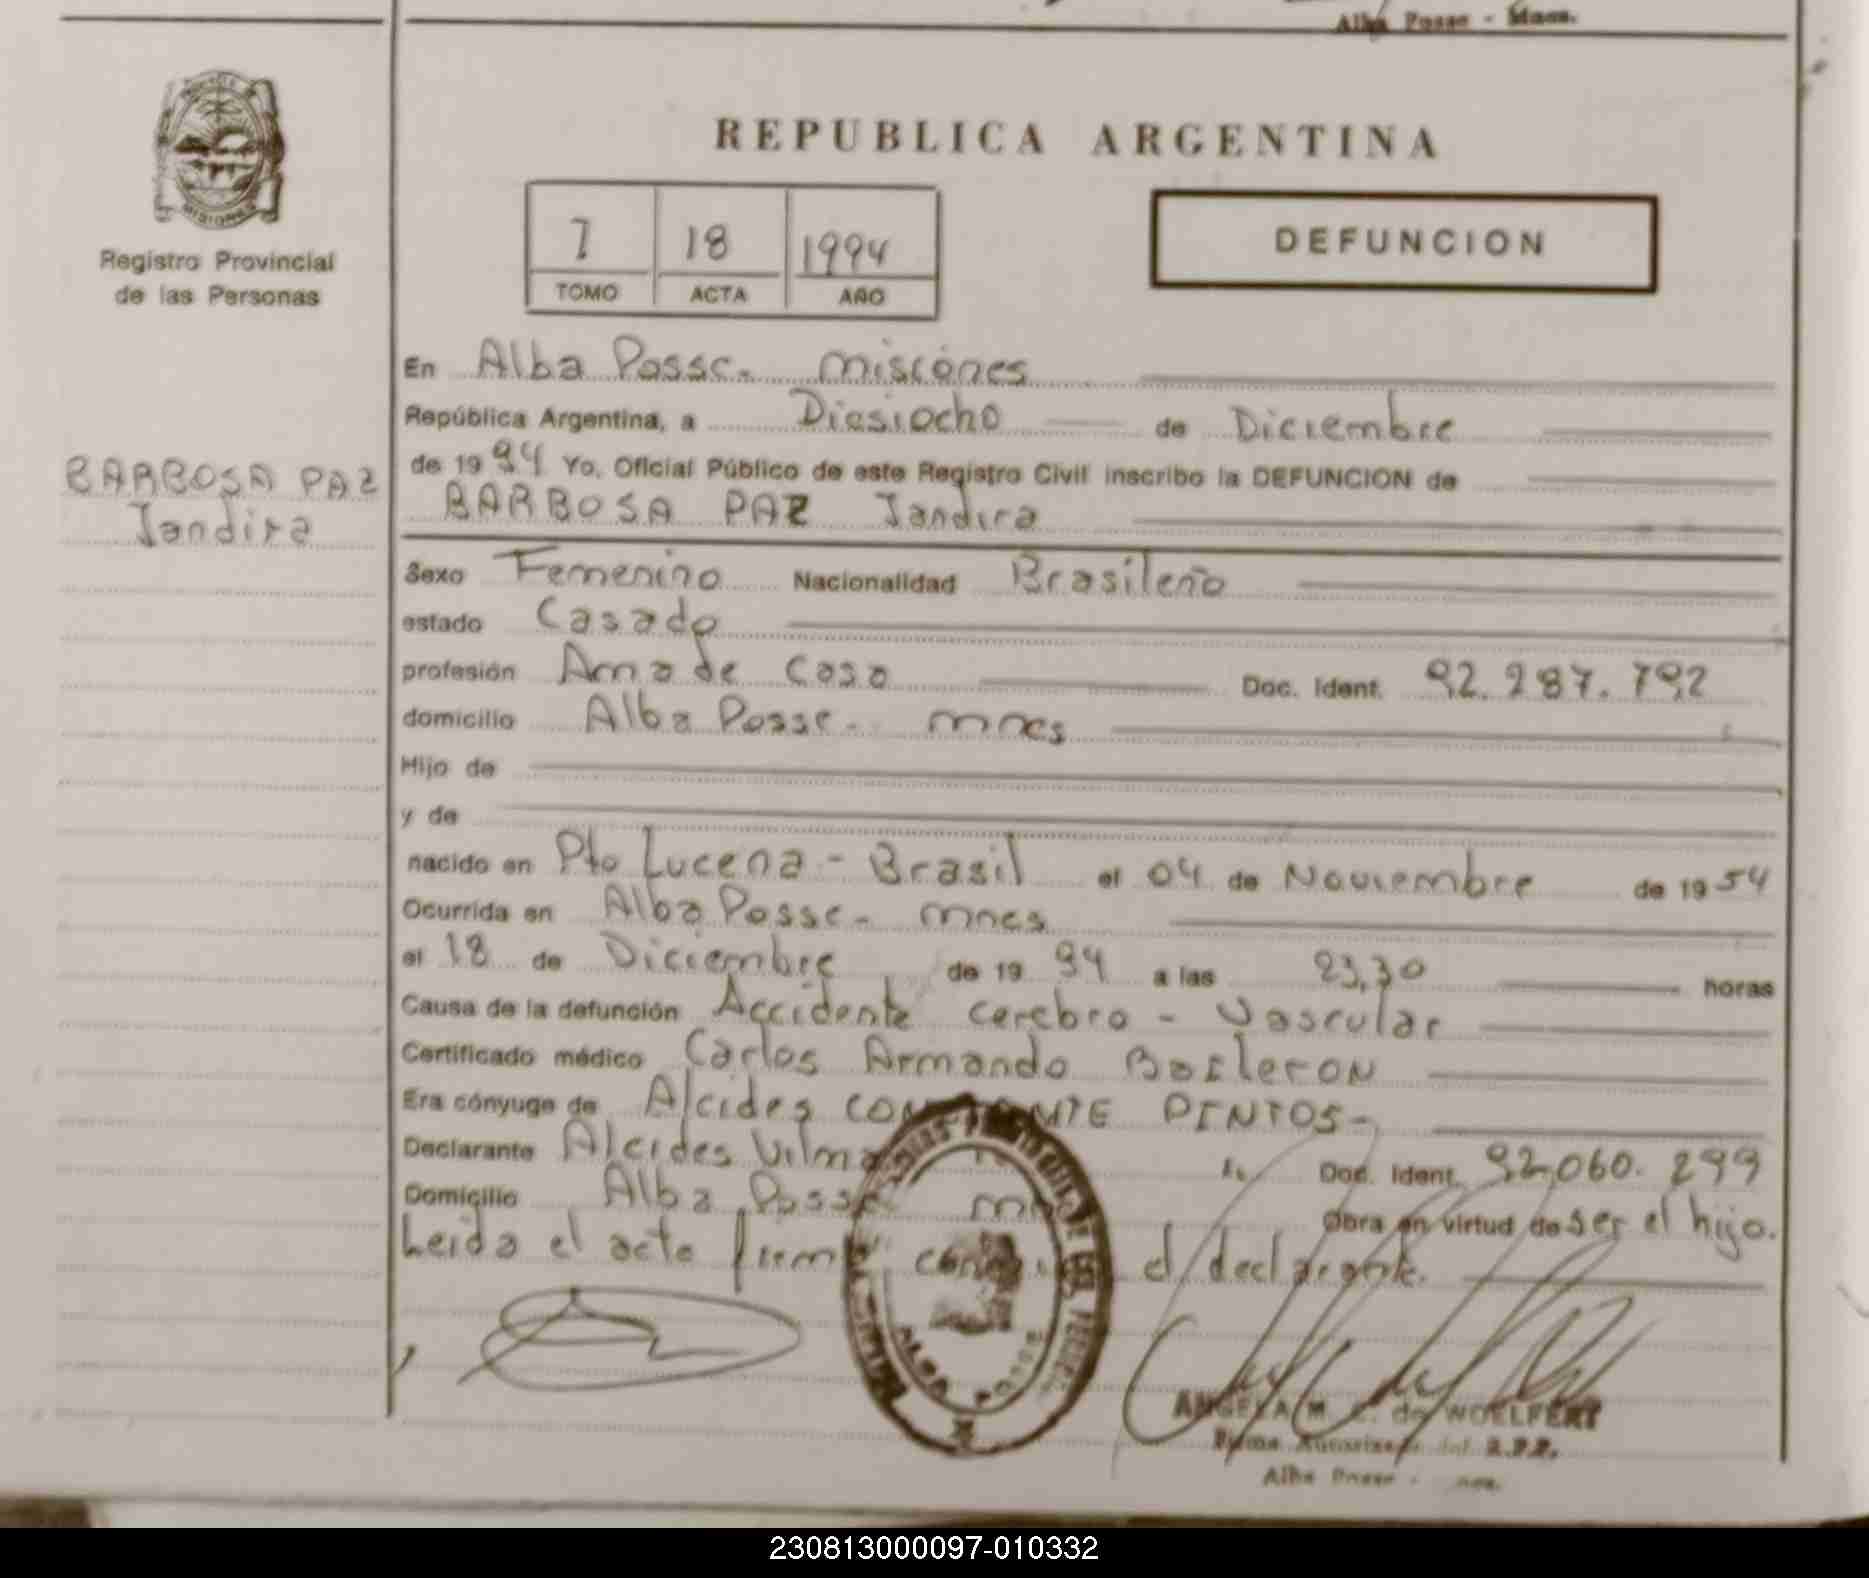 Alba Posse - Mnes.
REPUBLICA ARGENTINA
MISIONES
Registro Provincial
de las Personas
1 18 1994
TOMO ACTA AÑO
DEFUNCION
En Alba Posse. misiones
República Argentina, a Diesiocho de Diciembre
de 1994 Yo, Oficial Público de este Registro Civil inscribo la DEFUNCION de
BARBOSA PAZ Jandira
BARBOSA PAZ
Jandira
Sexo Femenino Nacionalidad Brasileño
estado Casado
profesión Ama de Casa Doc. Ident. 92.287.792
domicilio Alba Posse. mnes
Hijo de
y de
nacido en Pto Lucena - Brasil el 04 de Noviembre de 1954
Ocurrida en Alba Posse. mnes
el 18 de Diciembre de 1994 a las 23,30 horas
Causa de la defunción Accidente cerebro - Vascular
Certificado médico Carlos Armando
Era cónyuge de Alcides PINTOS-
Declarante Alcides Doc. Ident. 92.060.299
Domicilio Alba Posse Obra en virtud de ser el hijo.
Leida el acta el declarante.
ALBA POSSE
ANGELA M. C. de WOELFERT
Firma Autorizada del R.P.P.
Alba Posse - Mnes.
230813000097-010332